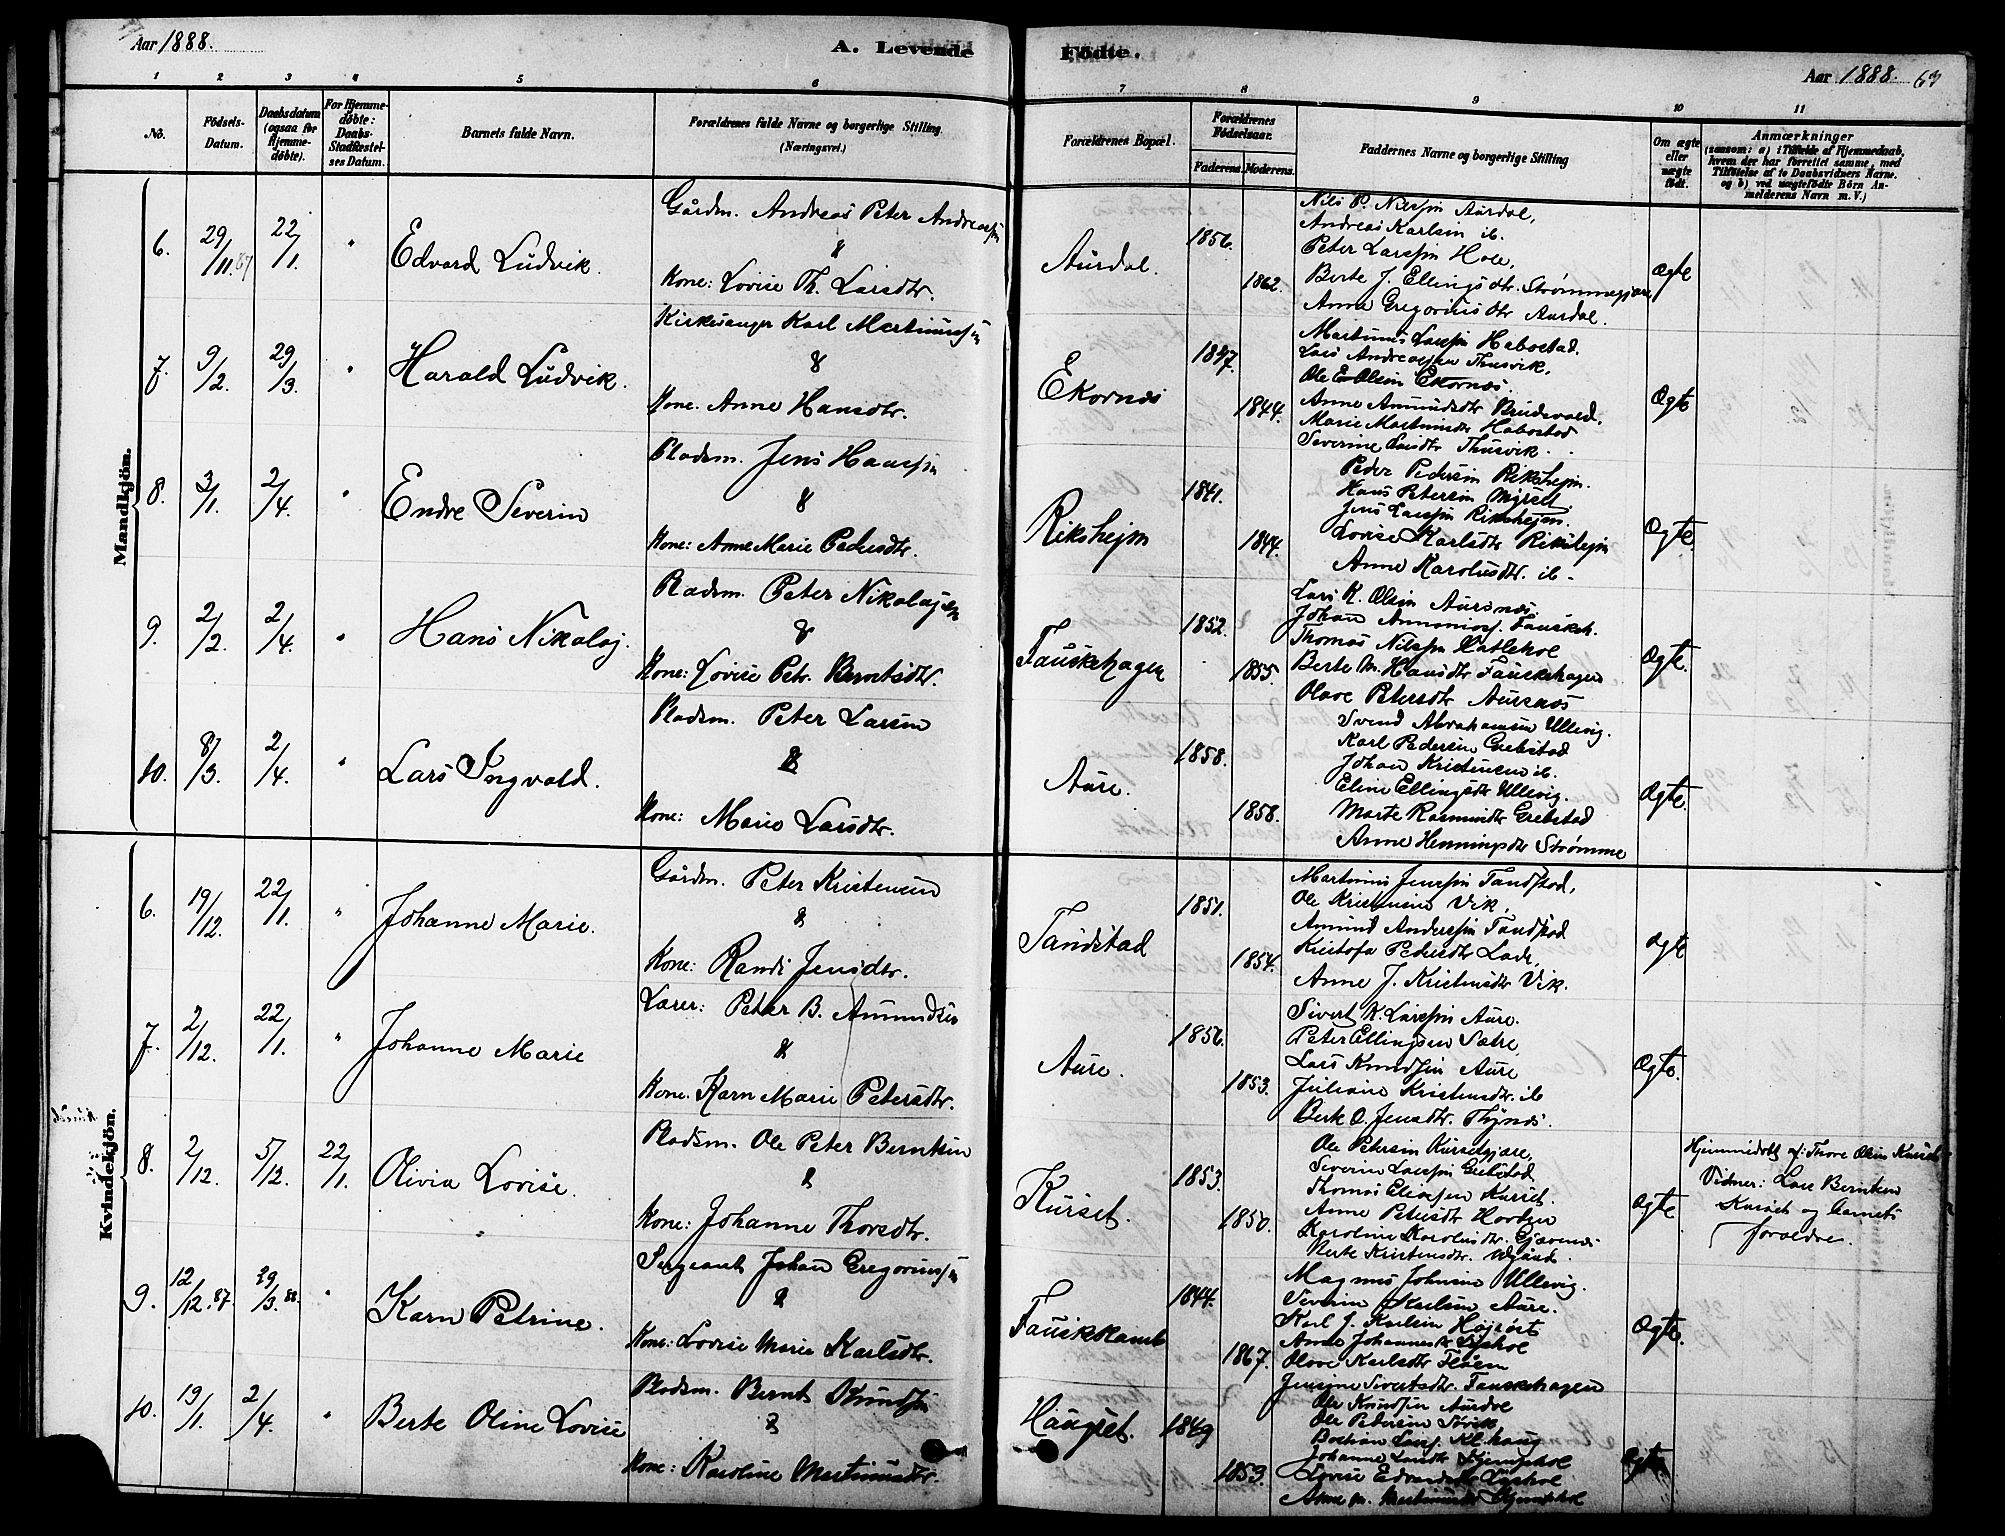 Aar 1888.
A. Levende
Fødte.
Aar 1888. 63
1 2 3 4 5 6 7 8 9 10 11
No.
Fødsels-Datum.
Daabsdatum (ogsaa for Hjemmedøbte).
For Hjemmedøbte: Daabs-Stadfæstelses Datum.
Barnets fulde Navn.
Forældrenes fulde Navne og borgerlige Stilling.
(Næringsvei.)
Forældrenes Bopæl.
Forældrenes Fødselsaar.
Faderens. Moderens.
Faddernes Navne og borgerlige Stilling
Om ægte eller uægte født.
Anmærkninger
(saasom: a) i Tilfælde af Hjemmedaab, hvem der har forrettet samme, med Tilføielse af to Daabsvidners Navne. og b) ved uægtefødte Börn Anmelderens Navn m. V.)
Mandkjön.
6. 29/11.87 22/1. " Edvard Ludvik.
Gårdm. Andreas Peter Andreassen
&
Kone: Lovise Th. Larsdtr.
Aurdal. 1856. 1862.
Nils P. Nilssen Aurdal,
Andreas Karlsen ib.
Peter Larssen Hole,
Berte J. Ellingsdtr. Strømmegjære
Anne Gregoriusdtr Aurdal.
Ægte
7. 9/2. 29/3. " Harald Ludvik.
Kirkesanger Karl Martinussen
&
Kone. Anne Hansdtr.
Ekornæs 1847. 1844.
Martinus Larssen Habostad.
Lars Andreassen Thusvik,
Ole E Olsen Ekornæs.
Anne Amundsdtr Brudevold.
Marie Martinusdtr Habostad
Severine Larsdtr Thusvik.
Ægte
8. 3/1. 2/4. " Endre Severin
Pladsm. Jens Hanssen
&
Kone: Anne Marie Pedersdtr.
Riksheim 1841. 1844.
Peder Pedersen Riksheim.
Hans Petersen
Jens Larssen Riksheim.
Lovise Karlsdtr Riksheim
Anne Karolusdtr. ib.
Ægte.
9. 2/2. 2/4. " Hans Nikolaj.
Pladsm. Peter Nikolajsen
&
Kone: Lovise Petr. Berntsdtr.
Fauskehagen 1852. 1855.
Lars K. Olsen Aursnæs.
Johan Fauskeh.
Thomas Nilssen Hatlehole
Berte M. Hansdtr Fauskehagen
Olave Petersdtr Aursnæs
Ægte.
10. 8/3. 2/4. " Lars Ingvald.
Pladsm. Peter Larsen
&
Kone: Marie Larsdtr.
Aure. 1858. 1858.
Svend Abrahamsen Ullevig.
Karl Pedersen Grebstad
Johan Kristensen ib.
Eline Ellingsdtr Ullevig.
Marte Rasmusdtr Grebstad
Anne Henningsdtr Strømme
Ægte.
Kvindekjön.
6. 19/12. 22/1. " Johanne Marie.
Gårdm. Peter Kristensen
&
Kone: Randi Jensdtr.
Tandstad 1851. 1854.
Martinus Jenssen Tandstad,
Ole Kristensen Vik,
Amund Anderssen Tandstad
Kristofa Pedersdtr Lade,
Anne J. Kristensdtr Vik.
Ægte
7. 2/12. 22/1. " Johanne Marie
Lærer: Peter B. Amundsen
&
Kone. Karn Marie Petersdtr.
Aure. 1856. 1853.
Sivert K. Larssen Aure.
Peter Ellingsen Sætre,
Lars Knudssen Aure
Juliane Kristensdtr. ib
Berte O. Jensdtr. Thynæs.
Ægte.
8. 2/12. 5/12. 22/1. Olivia Lovise.
Pladsm. Ole Peter Berntsen
&
Kone: Johanne Thoresdtr.
Kurset. 1853. 1850.
Ole Petersen Kursetgjære,
Severin Larssen Grebstad
Thomas Eliassen Kurset.
Anne Petersdtr Hovden
Karoline Karolusdtr. Gjævenes
Berte Kristensdtr.
Ægte
Hjemmedøbt af: Thore Olsen Kurset
Vidner: Lars Berntsen
Kurset og Barnets
forældre.
9. 12/12.87. 29/3.88. " Karn Petrine.
Sergeant Johan Gregoriussen
&
Kone: Lovise Marie Karlsdtr.
Fauskkamb 1844. 1867.
Magnus Johnsen Ullevig.
Severin Karlsen Aure.
Karl J. Karlsen
Anne Johannesdtr
Olave Karlsdtr Fløem
Jensine Sivertsdtr. Fauskehagen
Ægte.
10. 19/1. 2/4. " Berte Oline Lovise
Pladsm. Bernt Knudssen
&
Kone: Karoline Martinusdtr.
Haugset. 1849 1853.
Ole Knudssen Aurdal
Ole Petersen Søvik,
Bastian Larss. Kl. haug
Johanne Larsdtr
Lovise Edvardsdtr
Anne M. Martinusdtr
Ægte